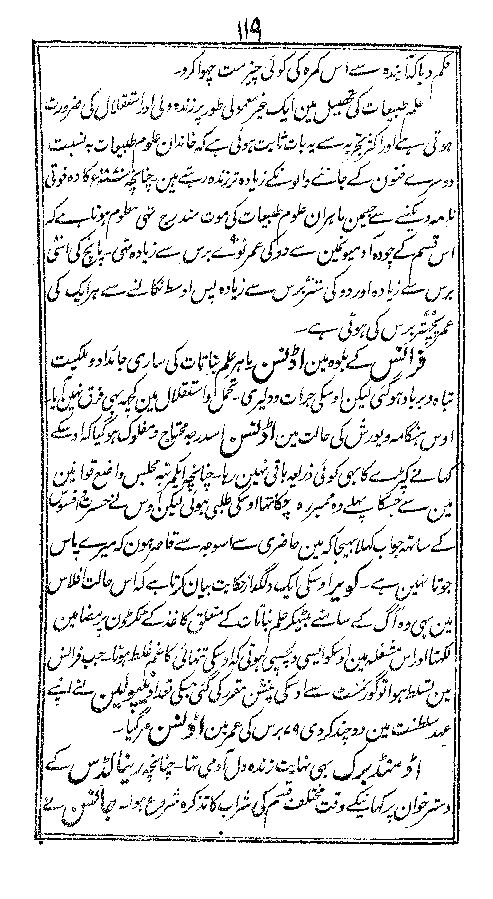 ۱۱۹
حکم دیا کہ آیندہ سے اس کمرہ کی کوئی چیز مت چھوا کرو۔
علم طبیعات کی تحصیل مین ایک غیر معمولی طور پر زندہ دلی اور استقلال کی ضرورت
ہوتی ہے اور اکثر تجربہ سے یہ بات ثابت ہوئی ہے کہ خاندان علوم طبیعات بہ نسبت
دوسرے فنون کے جاننے والونکے زیادہ تر زندہ رہتے ہین چنانچہ کا دہ فوتی
نامہ دیکھنے سے جسمین ماہران علوم طبیعات کی موت مندرج تھی معلوم ہوتا ہے کہ
اس قسم کے چودہ آدمیونمین سے دو کی عمر نوے برس سے زیادہ تھی۔ پانچ کی اسّی
برس سے زیادہ اور دو کی ستّر برس سے زیادہ پس اوسط نکالنے سے ہر ایک کی
عمر پچھتر برس کی ہوئی ہے۔
فرانس کے بلوہ مین اڈلنسن ماہر علم نباتات کی ساری جائداد و ملکیت
تباہ و برباد ہو گئی لیکن اوسکی جرات و دلیری۔ تحمل و استقلال مین کچھ بھی فرق نہین آیا۔
اوس ہنگامہ و یورش کی حالت مین اڈلنسن اسدرجہ محتاج و مفلوک ہو گیا کہ اوسکے
کھانے کپڑے کا بھی کوئی ذریعہ باقی نہین رہا۔ چنانچہ ایکمرتبہ مجلس واضع قوانین
مین سے جسکا پہلے وہ ممبر رہ چکا تھا اوسکی طلبی ہوئی لیکن اوس نے حسرت و افسوس
کے ساتھ جواب کہلا بھیجا کہ مین حاضری سے اسوجہ سے قاصر ہون کہ میرے پاس
جوتا نہین ہے۔ کوویر اوسکی ایک دلگداز حکایت بیان کرتا ہے کہ اس حالت افلاس
مین بھی وہ آگ کے سامنے بیٹھکر علم نباتات کے متعلق کاغذ کے ٹکڑون پر مضامین
لکھتا اور اس مشغلہ مین اوسکو ایسی دلچسپی ہوتی کہ اوسکی تنہائی کا غم غلط ہوتا۔ جب فرانس
مین تسلط ہوا تو گورنمنٹ سے اوسکی پنشن مقرر کی گئی جسکی تعداد نیپولین نے اپنے
عہد سلطنت مین دو چند کر دی ۷۹ برس کی عمر مین اڈلنسن مر گیا۔
اڈمنڈ برک بھی نہایت زندہ دل آدمی تھا۔ چنانچہ رینالڈس کے
دسترخوان پر کھانیکے وقت مختلف قسم کی شراب کا تذکرہ شروع ہوا۔ جانسن نے